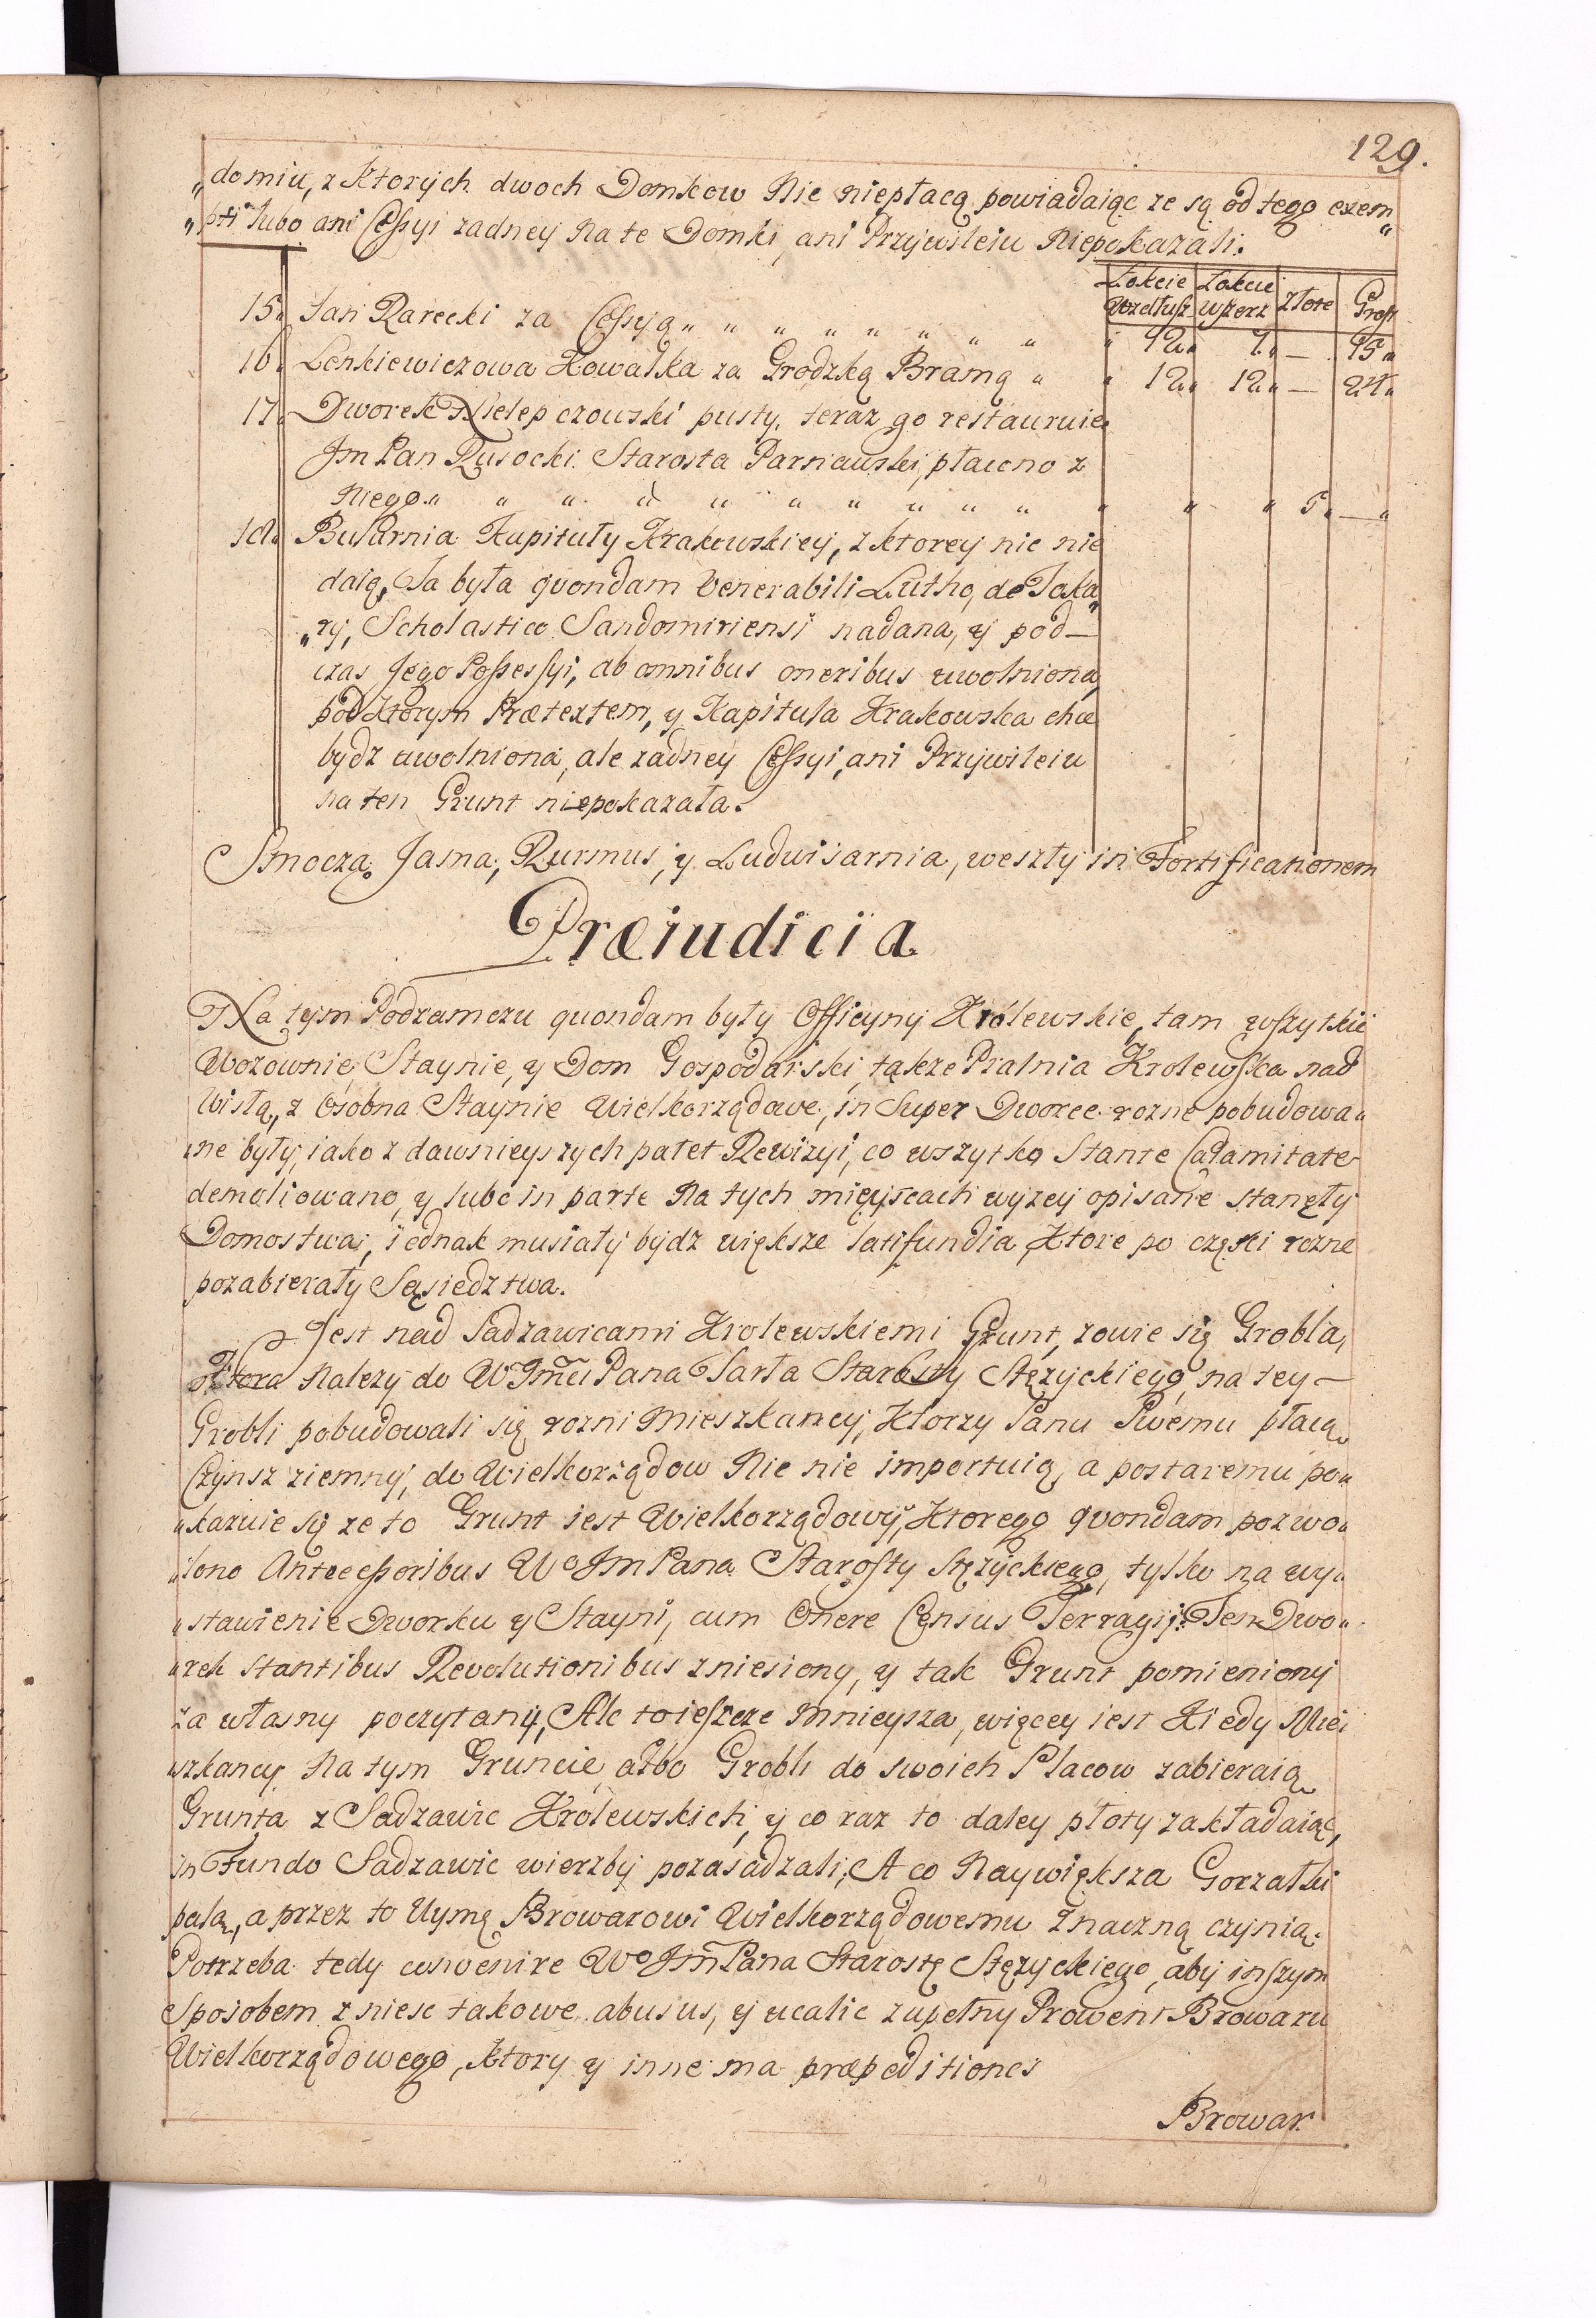 129.
„domiu, z ktorych dwoch Domkow Nic niepłacą powiadaiąc ze są od tego exem„
„pti lubo ani Cessyi zadney na te Domki, ani Przywileiu Niepokazali.
Łokcie Wzdłusz Łokcie Wszerz Złote Grosz
15. Jan Rarecki za Cessyą „ „ „ „ „ „ „ „ „ 12„ 7„ — 15„
16. Lenkiewiczowa Kowalka za Grodzką Bramą „ „ 12„ 12„ — 24„
17. Dworek Nielepczowski pusty, teraz go restauruie
Jm Pan Rusocki Starosta Parnawski, płacono z
Niego „ „ „ „ „ „ „ „ „ „ „ „ „ 5„ — „
18. Bursarnia Kapituły Krakowskiey, z ktorey nic nie
daią, Ta była quondam Venerabili Lutho, de Taka„
„ry, Scholastico Sandomiriensi nadana, y pod—
czas Jego Possessyi, ab omnibus oneribus uwolniona,
pod ktorym Prætextem, y Kapituła Krakowska chce
bydz uwolniona, ale zadney Cessyi, ani Przywileiu
na ten Grunt niepokazała.
Smocza Jama, Rurmus, y Ludwisarnia, weszły in Fortificationem
Præiudicia
Na tym Podzamczu quondam były Officyny Królewskie, tam wszytkie
Wozownie Staynie, y Dom Gospodarski, także Pralnia Krolewska nad
Wisłą, z osobna Staynie Wielkorządowe, in Super Dworce rozne pobudowa„
„ne były, iako z dawnieyszych patet Rewizyi, co wszytko Stante Calamitate
demoliowano, y lubo in parte Na tych mieyscach wyzey opisane stanęły
Domostwa, iednak musiały bydz większe latifundia, Ktore po częsci rozne
pozabierały Sąsiedztwa.
Jest nad Sadzawkami Krolewskiemi Grunt, zowie się Grobla,
Ktora Nalezy do W Jmći Pana Tarła Starosty Stęzyckiego, na tey—
Grobli pobudowali się rozni Mieszkancy, Ktorzy Panu Swemu płacą
Czynsz ziemny, do Wielkorządow Nic nie importuią, a postaremu po„
„kazuie się ze to Grunt iest Wielkorządowy, Ktorego quondam pozwo„
„lono Antecessoribus Wo Jm Pana Starosty Stęzyckiego, tylko na wy„
„stawienie Dworku y Stayni, cum Onere Census Terragij. Ten Dwo„
„rek stantibus Revolutionibus zniesiony, y tak Grunt pomieniony
za własny poczytany, Ale to ieszcze Mnieysza, więcey iest Kiedy Mie„
„szkancy Na tym Gruncie albo Grobli do swoich Placow zabieraią
Grunta z Sadzawic Królewskich, y co raz to daley płoty zakładaiąc,
in Fundo Sadzawic wierzby pozasadzali, A co Naywiększa Gorzałki
palą, a przez to Uymę Browarowi Wielkorządowemu Znaczną czynią.
Potrzeba tedy convenire Wo Jm Pana Starostę Stęzyckiego, aby inszym
Sposobem zniesc takowe abusus, y ucalic zupełny Prowent Browaru
Wielkorządowego, ktory y inne ma præpeditiones
Browar.